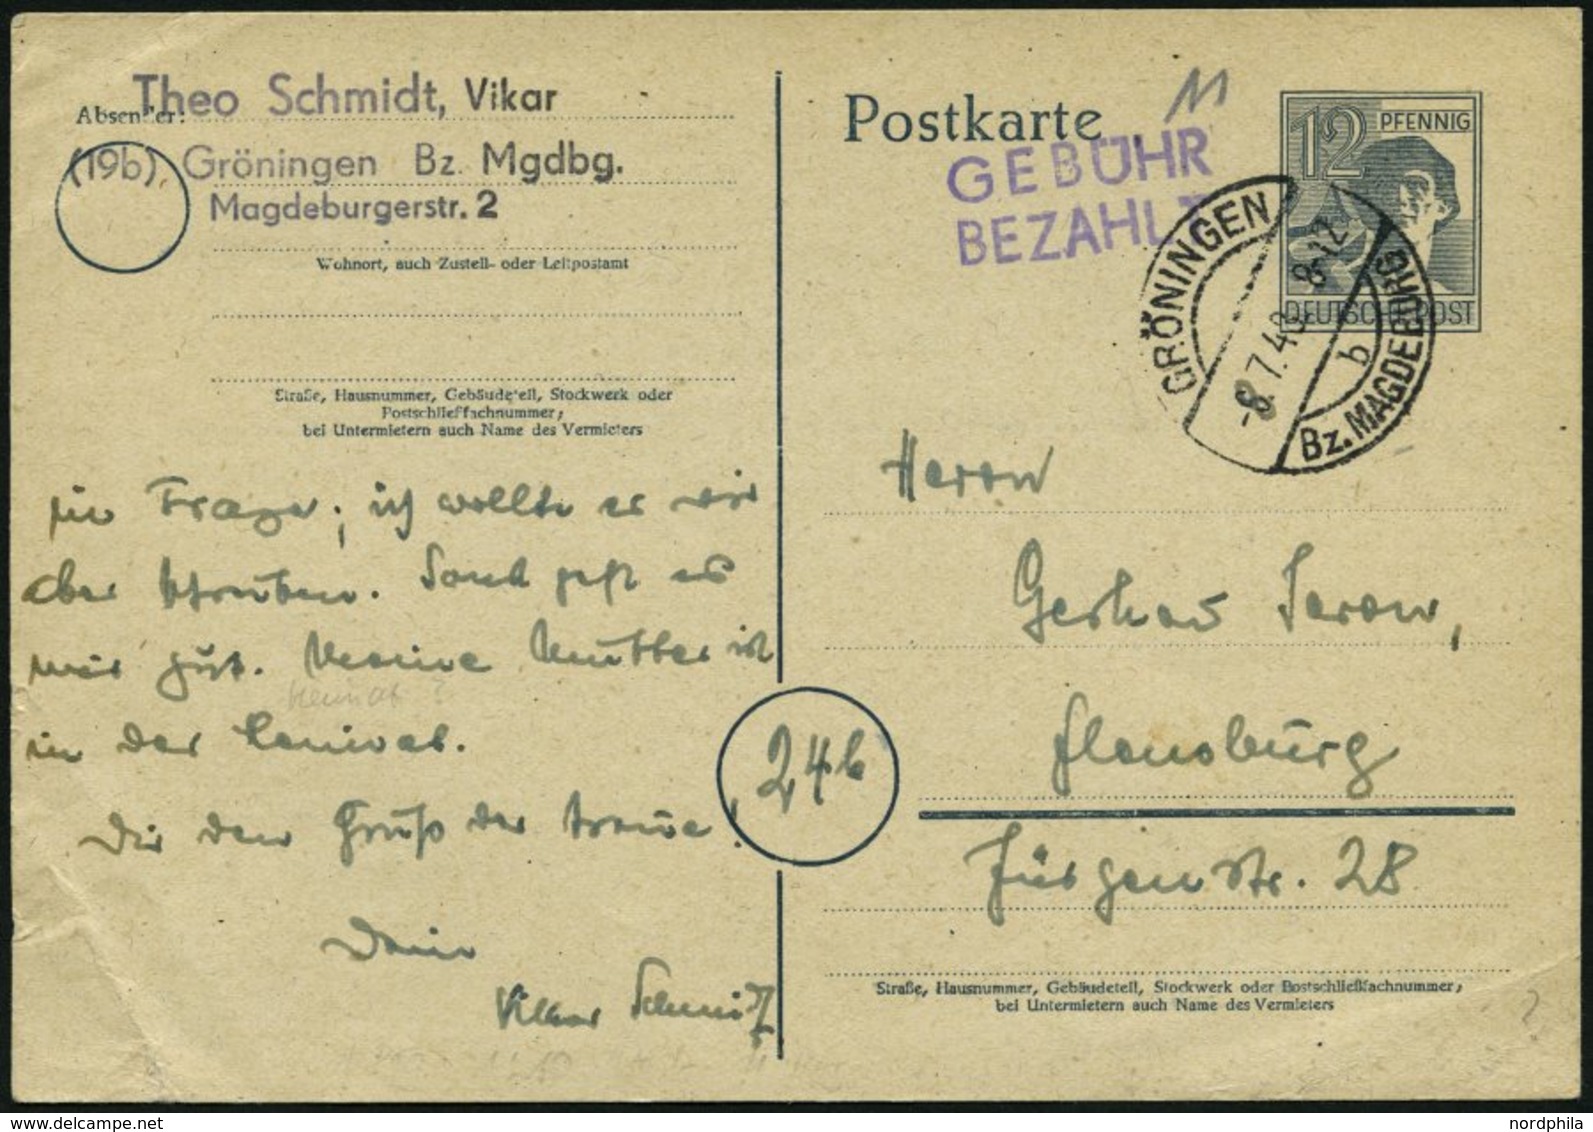 Theo Schmidt, Vikar
Absender:
(19b) Gröningen Bz. Mgdbg.
Magdeburgerstr. 2
Wohnort, auch Zustell- oder Leitpostamt
Straße, Hausnummer, Gebäudeteil, Stockwerk oder
Postschließfachnummer;
bei Untermietern auch Name des Vermieters
in Frage; ich wollte es wir
aber schreiben. Sonst geht es
mir gut. Meine Mutter ist
Heimat?
in der
Dir den Gruß der Treue!
Dein
Vikar Schmidt
Postkarte
GEBÜHR
BEZAHLT
12 PFENNIG
DEUTSCHE POST
GRÖNINGEN
-8.7.48 8-12
b
Bz. MAGDEBURG
24b
Herrn
Gerhard Sarow,
Flensburg
Jürgenstr. 28
Straße, Hausnummer, Gebäudeteil, Stockwerk oder Postschließfachnummer;
bei Untermietern auch Name des Vermieters
?
nordphila